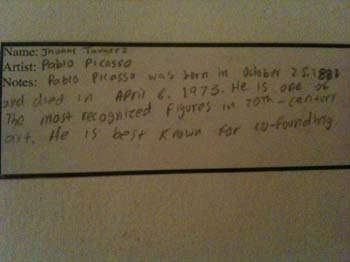 Name: Jhonni Tavarez
Artist: Pablo Picasso
Notes: Pablo Picasso was born in October 25, 1881
and died in April 8, 1973. He is one of
The most recognized figures in 20th-century
art. He is best known for co-founding